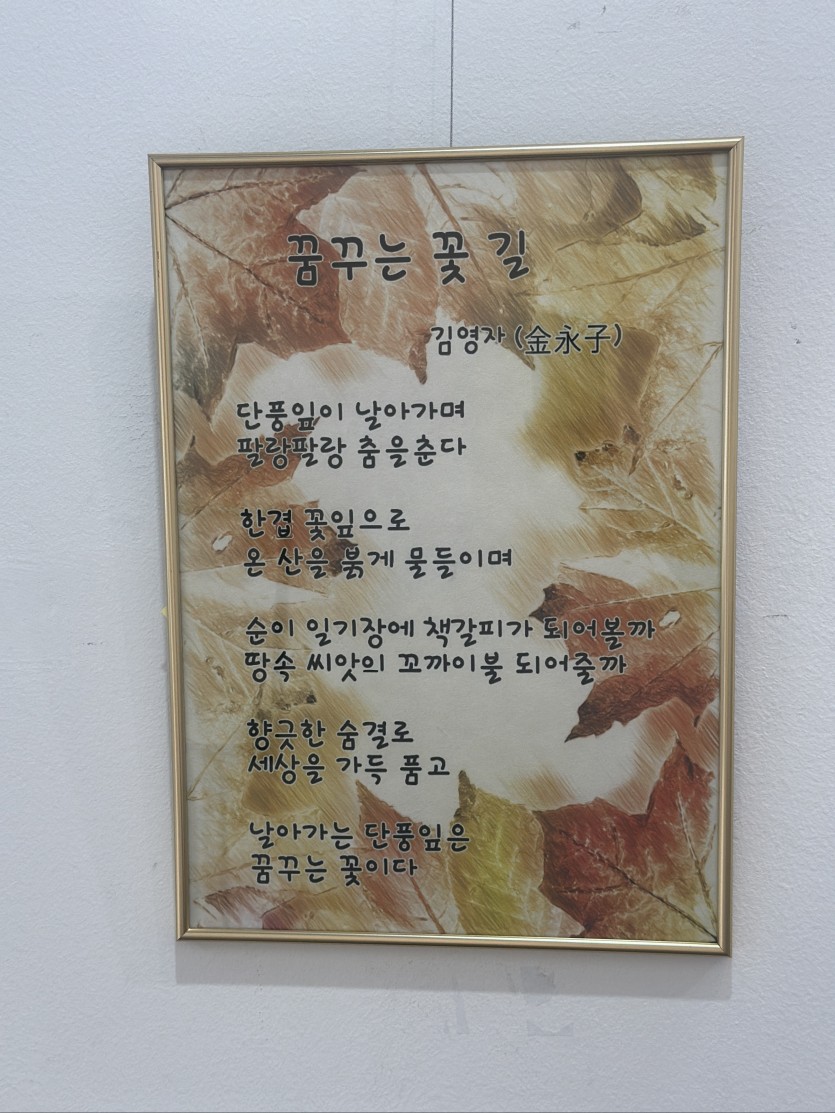 꿈꾸는 꽃 길
김영자 (金永子)
단풍잎이 날아가며
팔랑팔랑 춤을춘다
한겹 꽃잎으로
온 산을 붉게 물들이며
순이 일기장에 책갈피가 되어볼까
땅속 씨앗의 꼬까이불 되어줄까
향긋한 숨결로
세상을 가득 품고
날아가는 단풍잎은
꿈꾸는 꽃이다